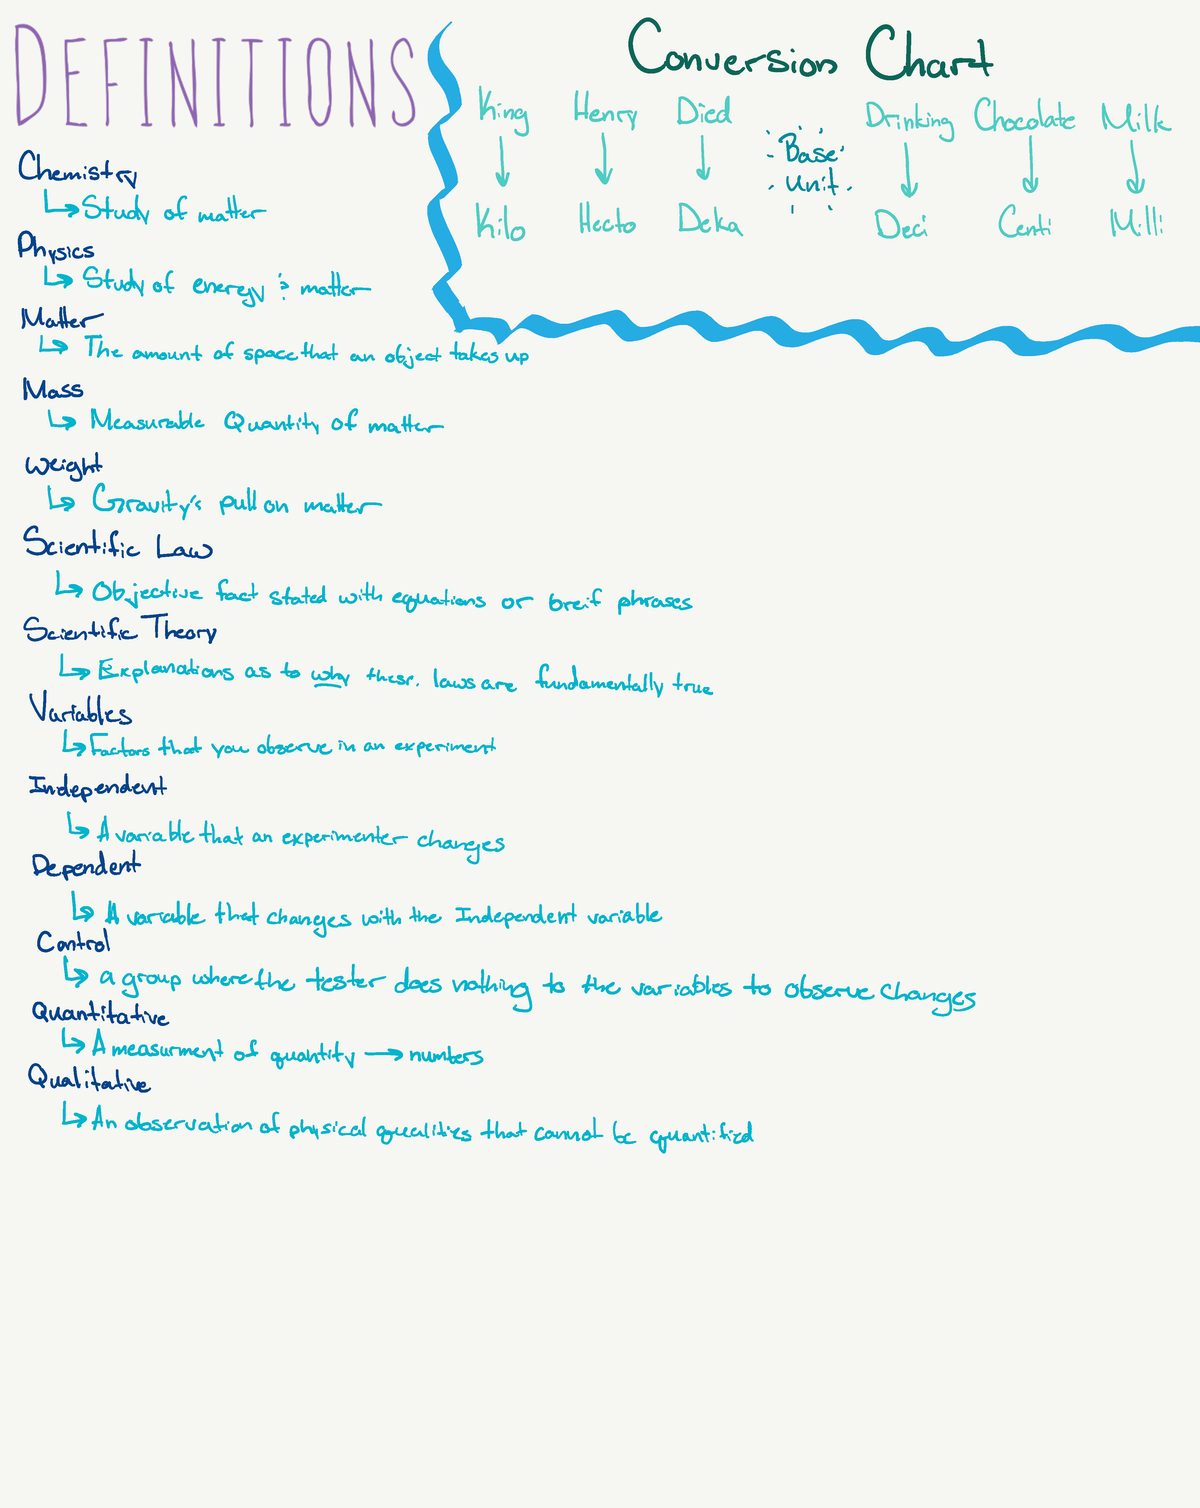 DEFINITIONS
Conversion Chart
King Henry Died Drinking Chocolate Milk
Base
Unit
Kilo Hecto Deka Deci Centi Milli
Chemistry
Study of matter
Physics
Study of energy & matter
Matter
The amount of space that an object takes up
Mass
Measurable Quantity of matter
Weight
Gravity's pull on matter
Scientific Law
Objective fact stated with equations or breif phrases
Scientific Theory
Explanations as to why these laws are fundamentally true
Variables
Factors that you observe in an experiment
Independent
A variable that an experimenter changes
Dependent
A variable that changes with the Independent variable
Control
a group where the tester does nothing to the variables to observe changes
Quantitative
A measurment of quantity → numbers
Qualitative
An observation of physical qualities that cannot be quantified